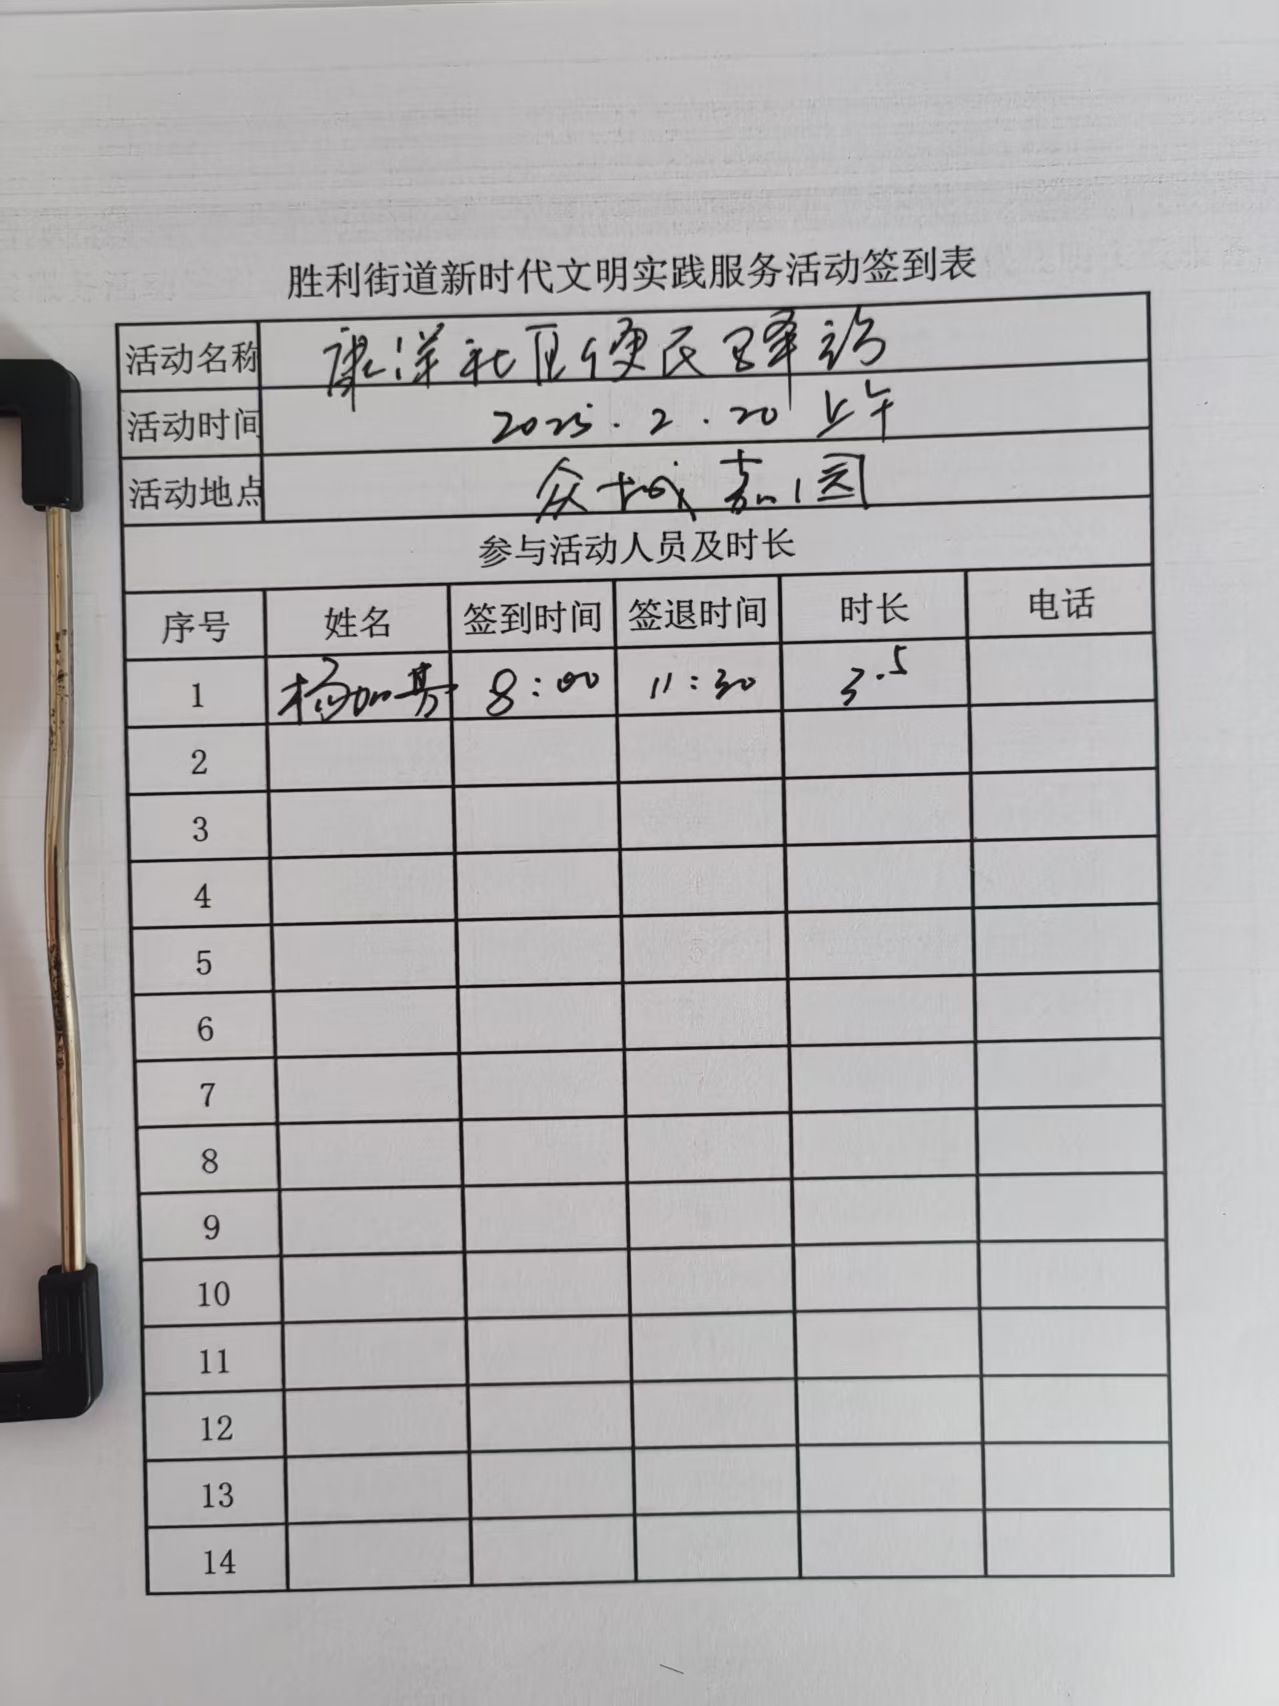 胜利街道新时代文明实践服务活动签到表
活动名称 康洋社区便民
活动时间 2025.2.20 上午
活动地点 众城嘉园
参与活动人员及时长
序号 姓名 签到时间 签退时间 时长 电话
1 杨加 8:00 11:30 3.5
2
3
4
5
6
7
8
9
10
11
12
13
14